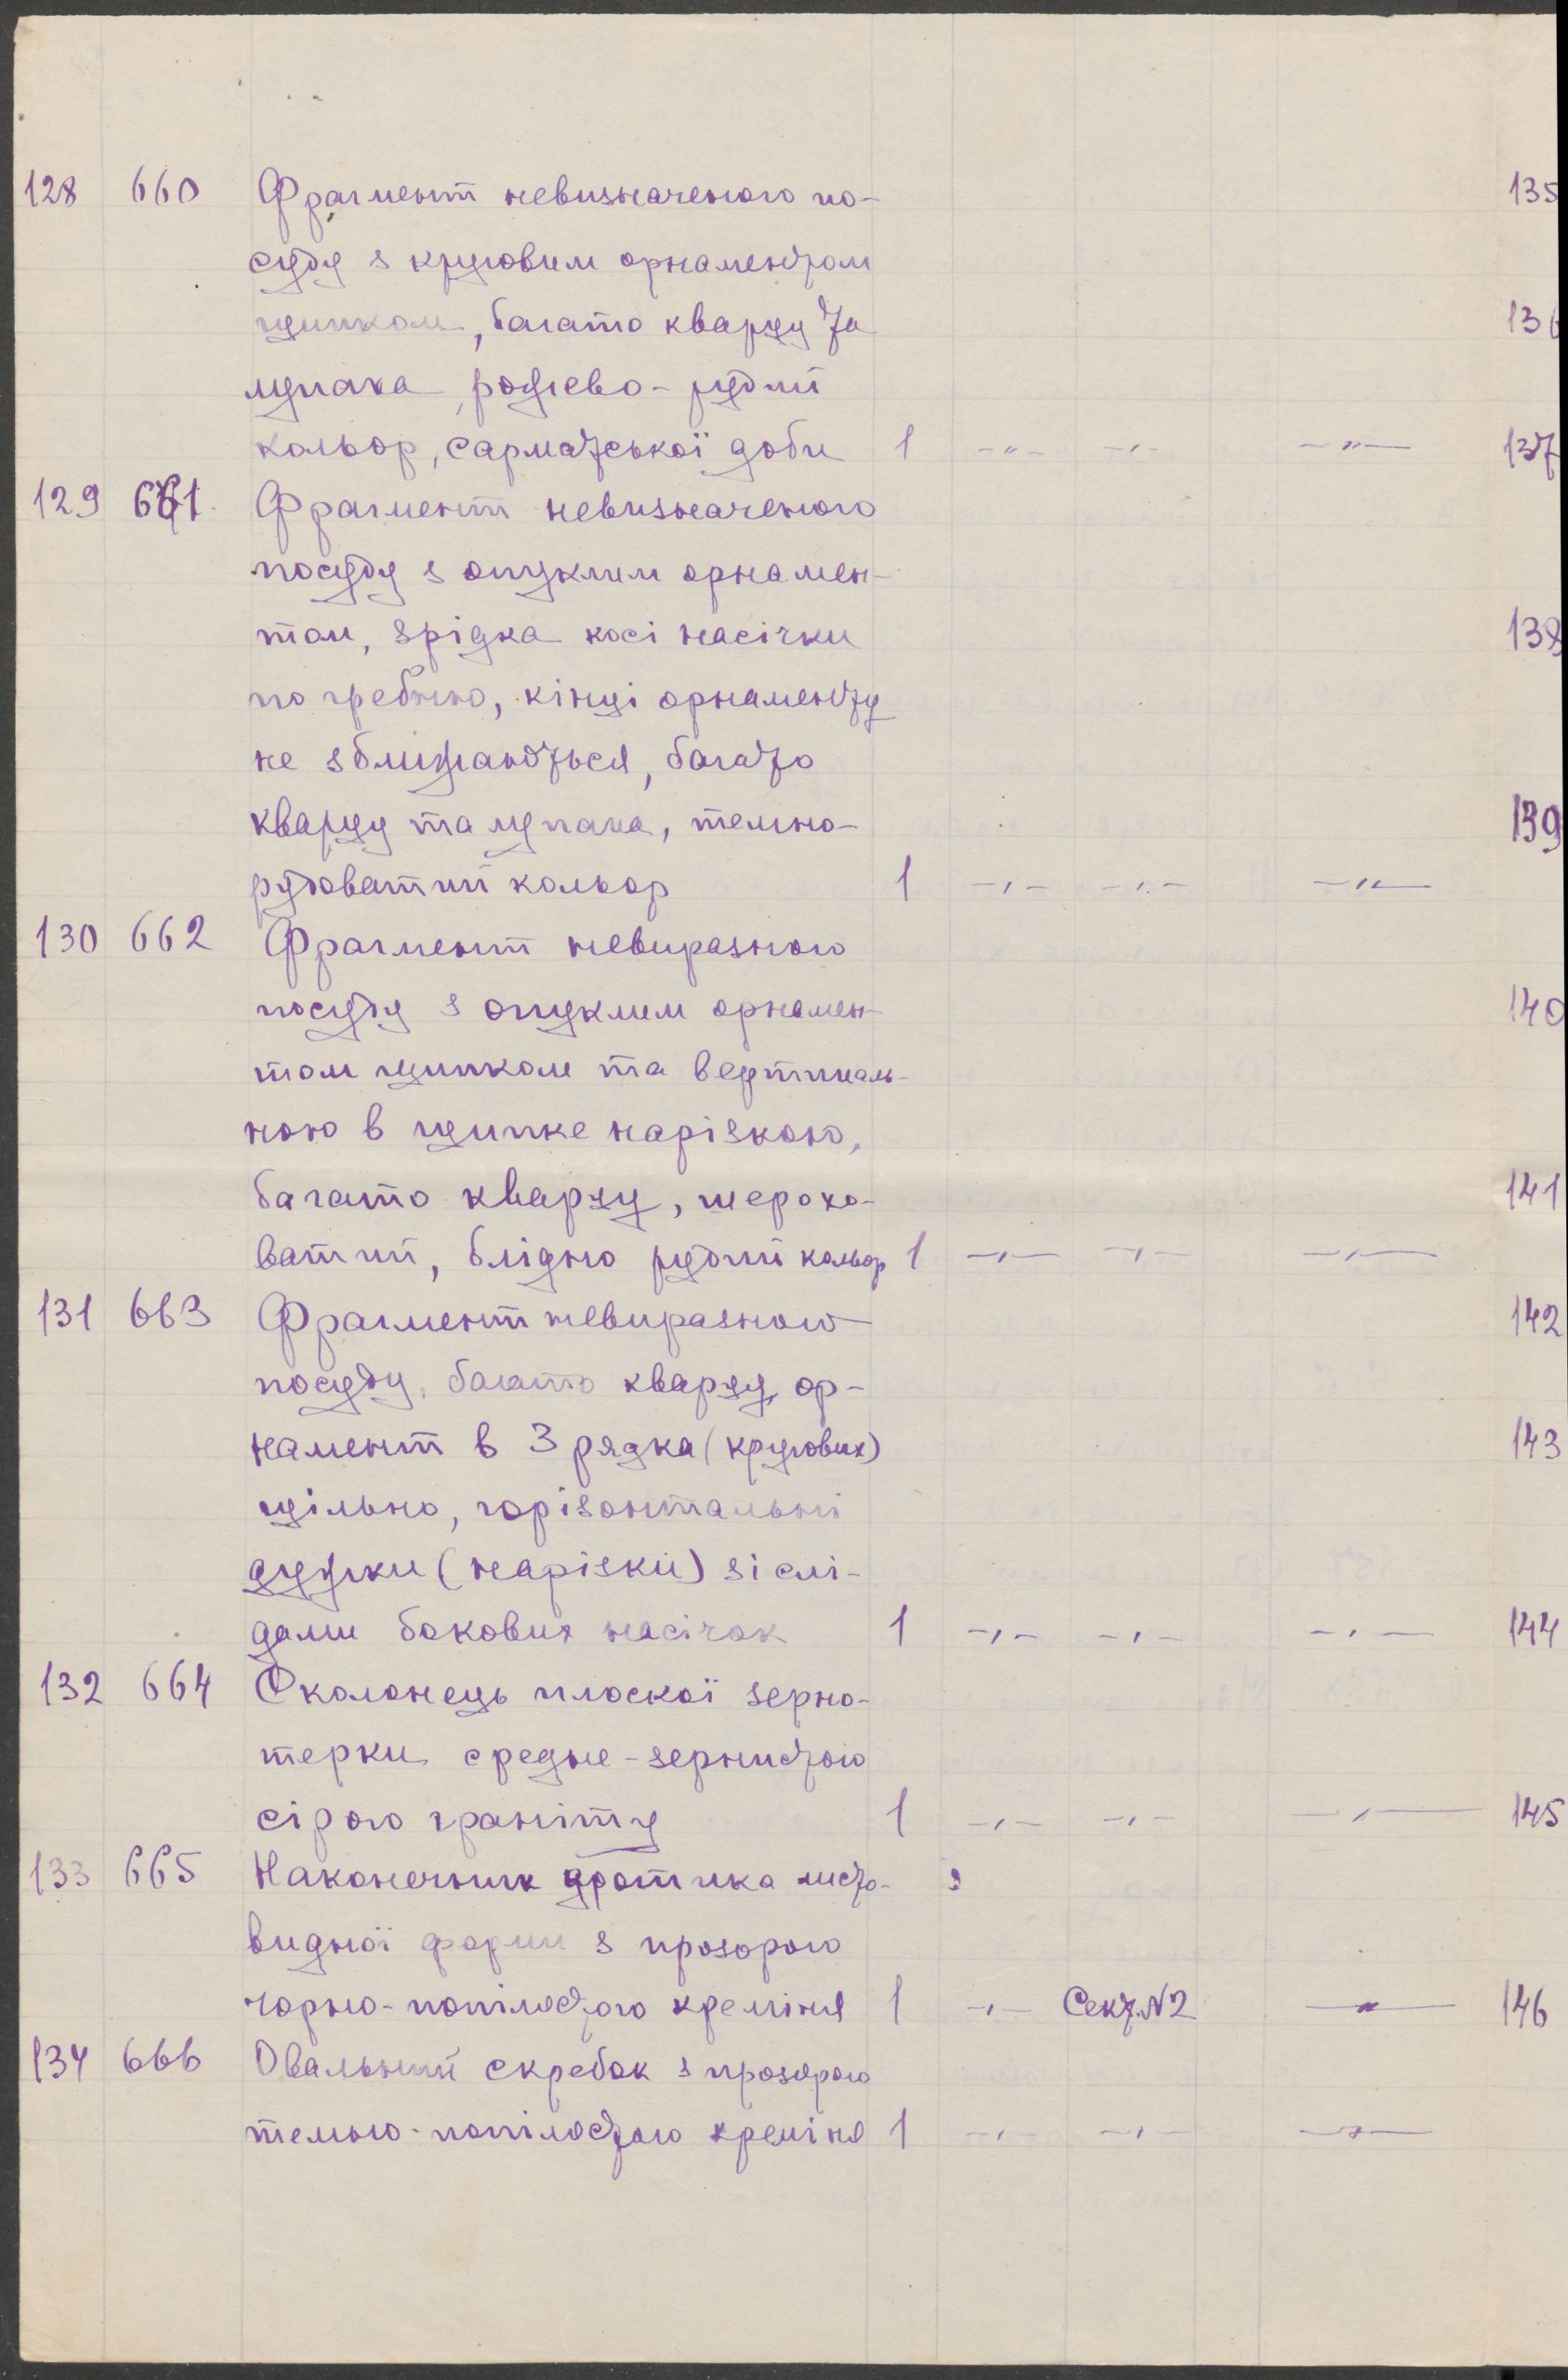 128 660 Фрагмент невизначеного по- 135
суду з круговим орнаментом
щипком, багато кварцу та 136
лупака, рожево-рудий
кольор, сарматської доби 1 -"- -"- -"- 137
129 661 Фрагмент невизначеного
посуду з опуклим орнамен-
том, зрідка косі насічки 138
по гребню, кінці орнаменту
не зближаються, багато
кварцу та лупака, темно- 139
рудоватий кольор 1 -"- -"- -"-
130 662 Фрагмент невиразного
посуду з опуклим орнамен- 140
том щипком та вертикаль-
ною в щипке нарізкою,
багато кварцу, шерохо- 141
ватий, блідно рудий кольор 1 -"- -"- -"-
131 663 Фрагмент невиразного 142
посуду, багато кварцу, ор-
намент в 3 рядка (кругових) 143
щільно, горізонтальні
дужки (нарізки) зі слі-
дами бокових насічок 1 -"- -"- -"- 144
132 664 Осколонець плоскої зерно-
терки средне-зернистого
сірого граніту 1 -"- -"- -"- 145
133 665 Наконечник дротика листо-
видної форми з прозорого
чорно-попілястого креміня 1 -"- Сект.№2 -"- 146
134 666 Овальний скребок з прозорого
темно-попілястого креміня 1 -"- -"- -"-